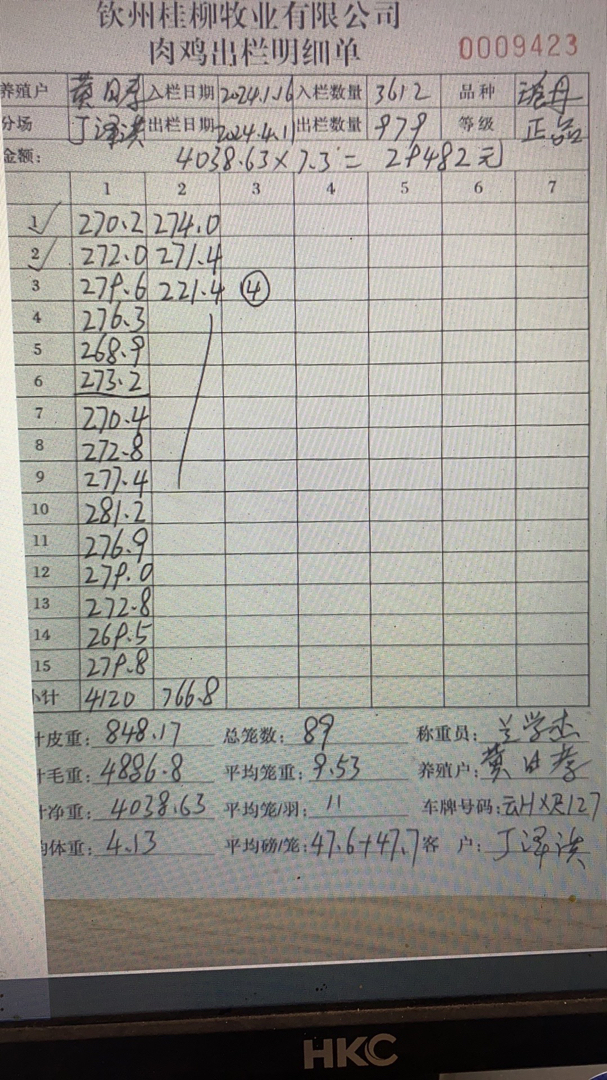 钦州桂柳牧业有限公司
肉鸡出栏明细单
0009423
养殖户 黄日孝 入栏日期 2024.1.16 入栏数量 3612 品种
分场 丁泽洪 出栏日期 2024.4.11 出栏数量 979 等级 正品
金额: 4038.63×7.3= 29482元
1 2 3 4 5 6 7
1 270.2 274.0
2 272.0 271.4
3 279.6 221.4 ④
4 276.3
5 268.9
6 273.2
7 270.4
8 272.8
9 277.4
10 281.2
11 276.9
12 279.0
13 272.8
14 269.5
15 279.8
小计 4120 766.8
计皮重: 848.17 总笼数: 89 称重员: 兰学杰
计毛重: 4886.8 平均笼重: 9.53 养殖户: 黄日孝
计净重: 4038.63 平均笼/羽: 11 车牌号码: 云HXR127
均体重: 4.13 平均磅/笼: 47.6+47.7 客 户: 丁泽洪
HKC